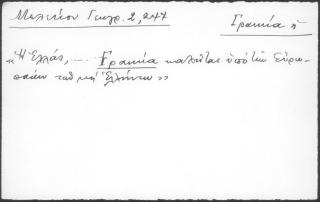 Μελετίου Γεωγρ. 2, 247
Γραικία ἡ
« Ἡ Ἑλλάς, .... Γραικία καλεῖται ὑπὸ τῶν Εὐρω-
παίων καὶ Ἑλλήνων »